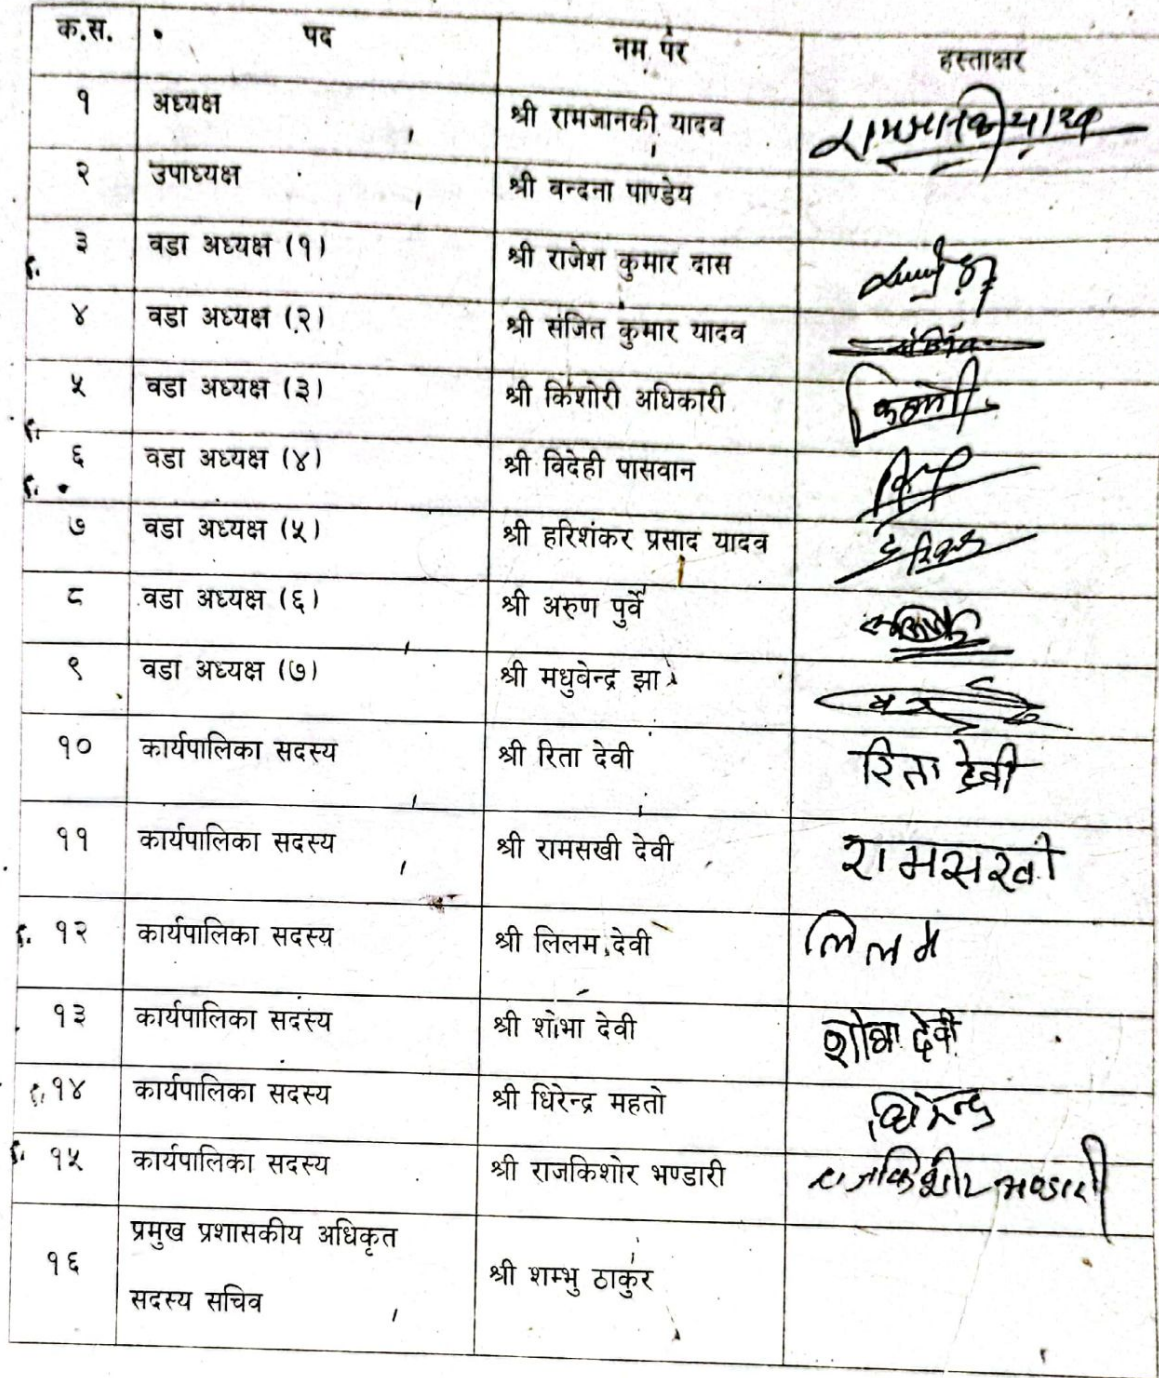 क.स. पद नम पर हस्ताक्षर
१ अध्यक्ष श्री रामजानकी यादव रामजानकी यादव
२ उपाध्यक्ष श्री वन्दना पाण्डेय
३ वडा अध्यक्ष (१) श्री राजेश कुमार दास
४ वडा अध्यक्ष (२) श्री संजित कुमार यादव
५ वडा अध्यक्ष (३) श्री किशोरी अधिकारी
६ वडा अध्यक्ष (४) श्री विदेही पासवान
७ वडा अध्यक्ष (५) श्री हरिशंकर प्रसाद यादव
८ वडा अध्यक्ष (६) श्री अरुण पुर्वे
९ वडा अध्यक्ष (७) श्री मधुवेन्द्र झा
१० कार्यपालिका सदस्य श्री रिता देवी रिता देवी
११ कार्यपालिका सदस्य श्री रामसखी देवी रामसखी
१२ कार्यपालिका सदस्य श्री लिलम देवी लिलम
१३ कार्यपालिका सदस्य श्री शोभा देवी शोभा देवी
१४ कार्यपालिका सदस्य श्री धिरेन्द्र महतो धिरेन्द्र
१५ कार्यपालिका सदस्य श्री राजकिशोर भण्डारी राजकिशोर भण्डारी
प्रमुख प्रशासकीय अधिकृत
१६ श्री शम्भु ठाकुर
सदस्य सचिव